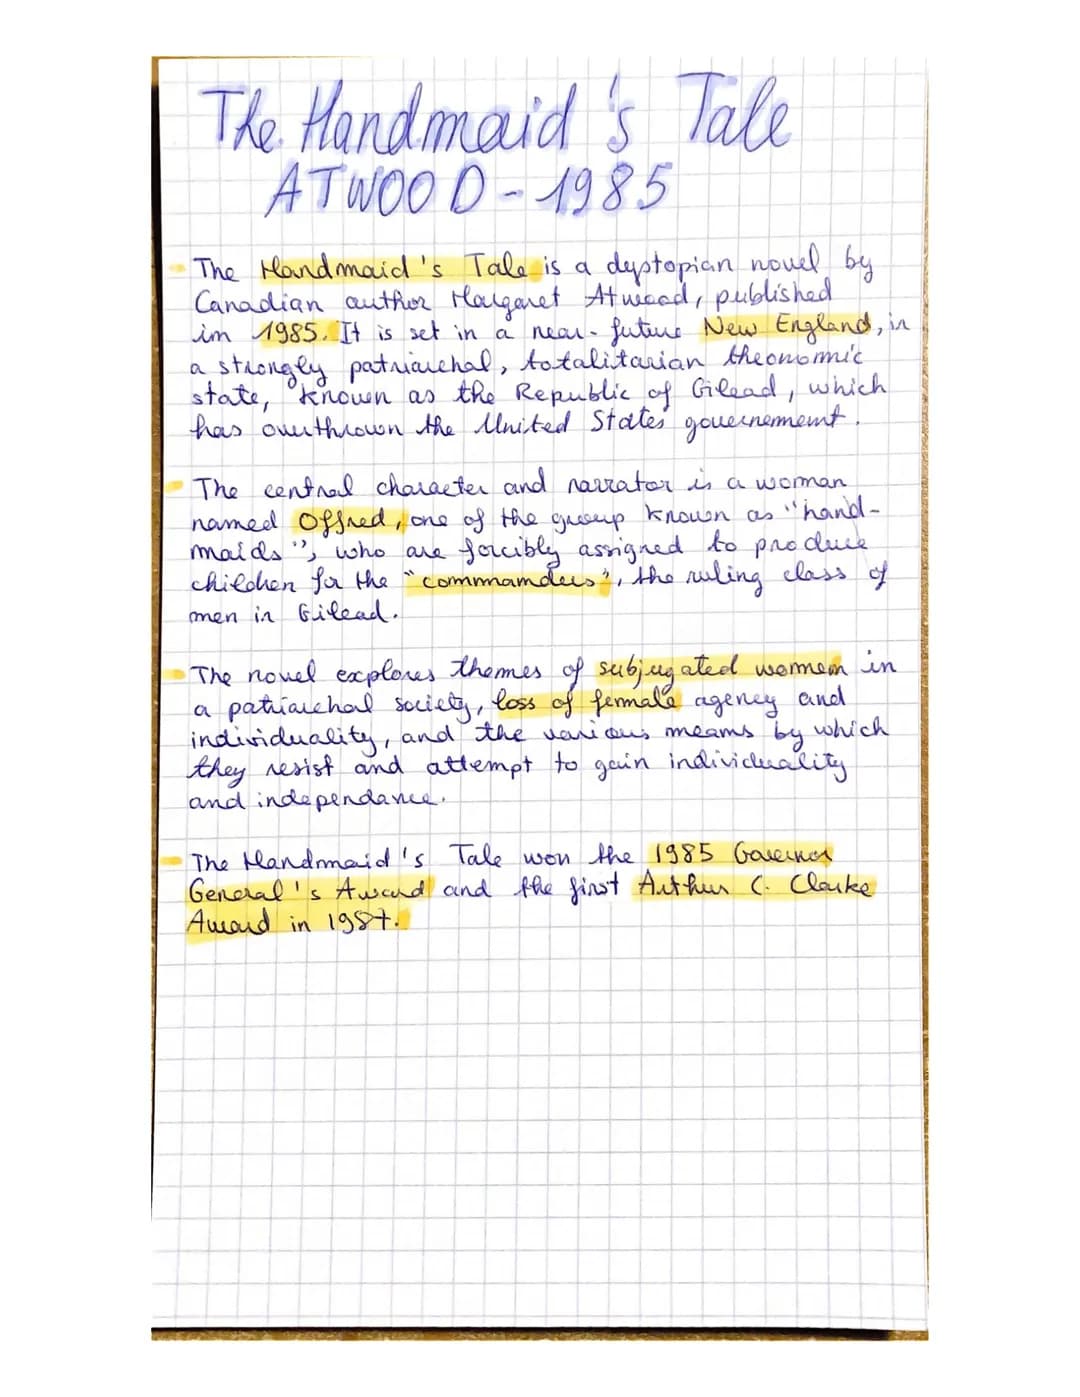 The Handmaid's Tale
ATWOOD - 1985
The Handmaid's Tale is a dystopian novel by
Canadian author Margaret Atwood, published
im 1985. It is set in a near-future New England, in
a strongly patriarchal, totalitarian theonomic
state, known as the Republic of Gilead, which
has overthrown the United States governememt.
The central character and narrator is a woman
named Offred, one of the group known as "hand-
maids", who are forcibly assigned to produce
children for the "commmamders", the ruling class of
men in Gilead.
The novel explores themes of subjugated womem in
a patriarchal society, loss of female agency and
individuality, and the various meams by which
they resist and attempt to gain individuality
and independance.
The Handmaid's Tale won the 1985 Governor
General's Award and the first Arthur C. Clarke
Award in 1987.